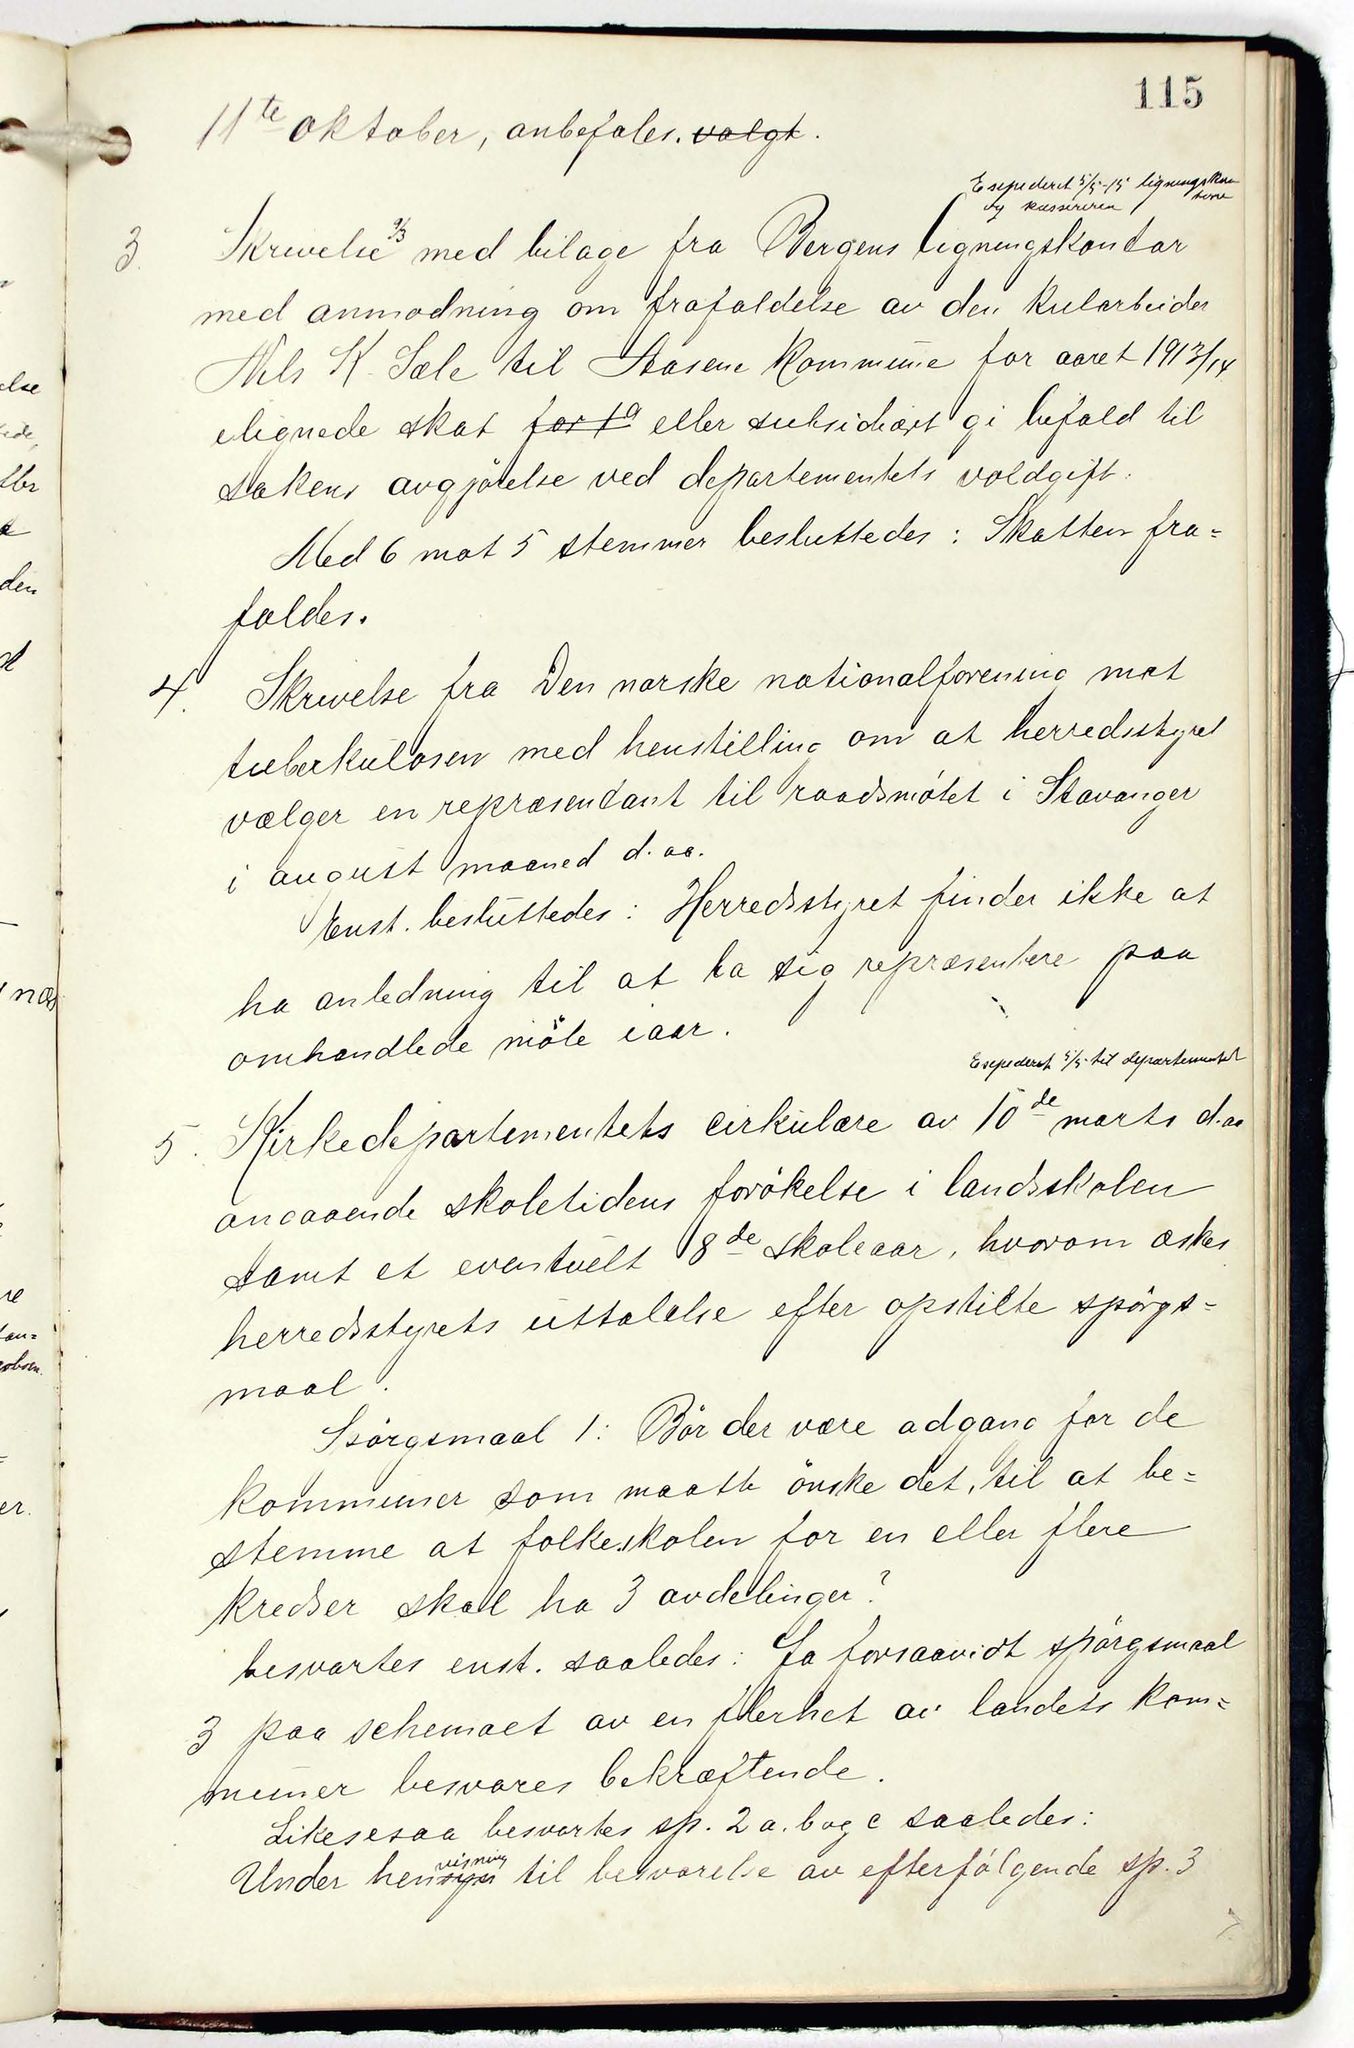 115
11te oktober, anbefales. valgt.
Expederet 5/5-15 ligningskon
og kassereren
tore
3. Skrivelse 9/3 med bilage fra Bergens ligningskontor
med anmodning om frafaldelse av den kularbeider
Nils K. Sæle til Aasene kommune for aaret 1913/14
ilignede skat for 19 eller subsidiært gi befald til
sakens avgjörelse ved departementets voldgift.
Med 6 mot 5 stemmer besluttedes: Skatten fra=
faldes.
4. Skrivelse fra Den norske nationalforening mot
tuberkulosen med henstilling om at herredsstyret
vælger en repræsentant til raadsmötet i Stavanger
i august maaned d.aa.
Enst. besluttedes: Herredsstyret finder ikke at
ha anledning til at la sig repræsentere paa
omhandlede möte iaar.
Expederet 5/5 til departementet
5. Kirkedepartementets cirkulære av 10de marts d.aa
angaaende skoletidens forökelse i landsskolen
samt et eventuelt 8de skoleaar, hvorom æskes
herredsstyrets uttalelse efter opstilte spörgs=
maal.
Spörgsmaal 1: Bör der være adgang for de
kommuner som maatte önske det, til at be=
stemme at folkeskolen for en eller flere
kredser skal ha 3 avdelinger?
besvartes enst. saaledes: Ja forsaavidt spörgsmaal
3 paa schemaet av en flerhet av landets kom=
muner besvares bekræftende.
Likesesaa besvartes sp. 2 a. b og c saaledes:
visning
Under hensyn til besvarelse av efterfölgende sp. 3